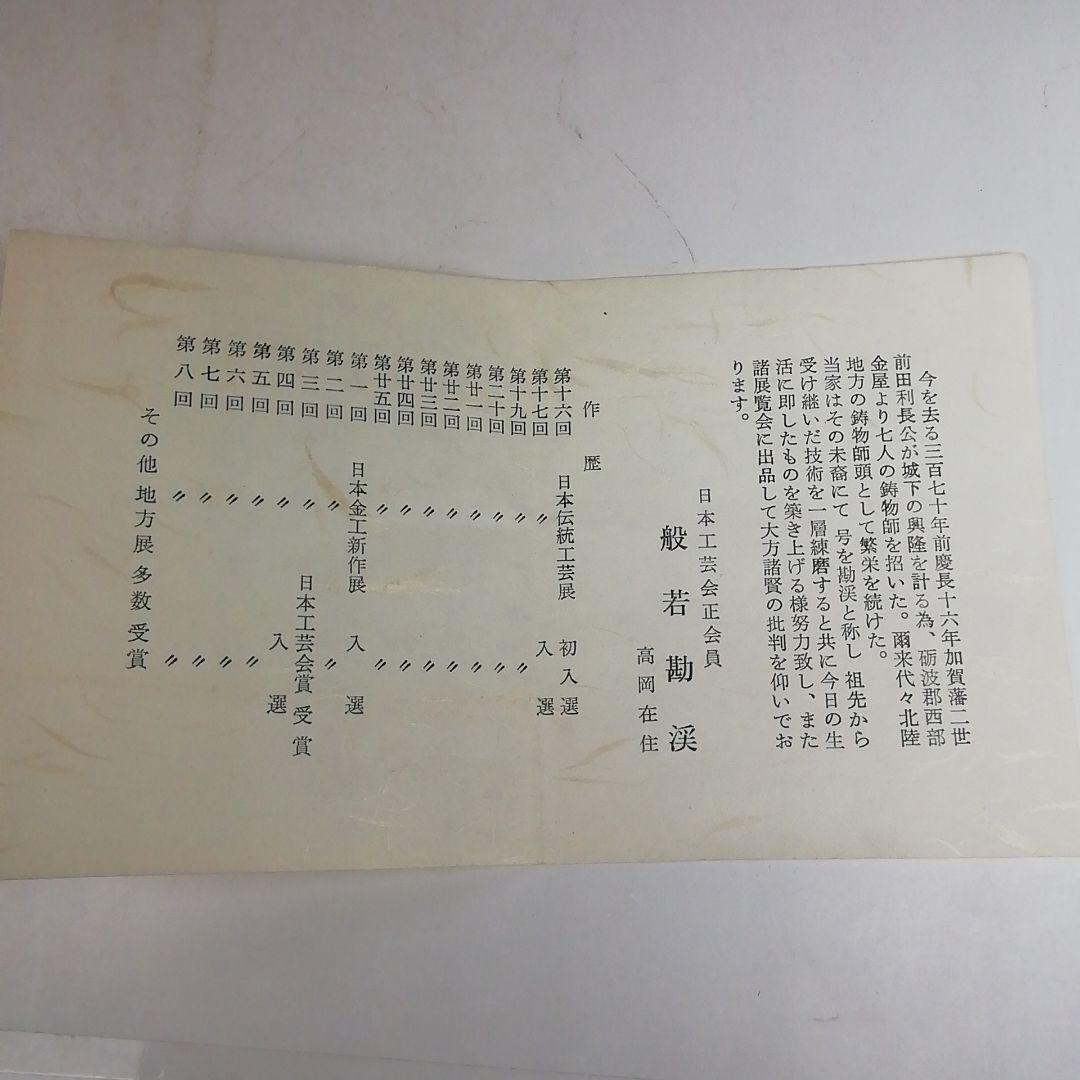 今を去る三百七十年前慶長十六年加賀藩二世
前田利長公が城下の興隆を計る為、砺波郡西部
金屋より七人の鋳物師を招いた。爾来代々北陸
地方の鋳物師頭として繁栄を続けた。
当家はその末裔にて 号を勘渓と称し 祖先から
受け継いだ技術を一層練磨すると共に今日の生
活に即したものを築き上げる様努力致し、また
諸展覧会に出品して大方諸賢の批判を仰いでお
ります。
日本工芸会正会員
般若勘渓
高岡在住
作歴
第十六回 日本伝統工芸展 初入選
第十七回 〃 入選
第十九回 〃 〃
第二十回 〃 〃
第廿一回 〃 〃
第廿二回 〃 〃
第廿三回 〃 〃
第廿四回 〃 〃
第廿五回 〃 〃
第一回 日本金工新作展 入選
第二回 〃 〃
第三回 〃 日本工芸会賞受賞
第四回 〃 入選
第五回 〃 〃
第六回 〃 〃
第七回 〃 〃
第八回 〃 〃
その他地方展多数受賞